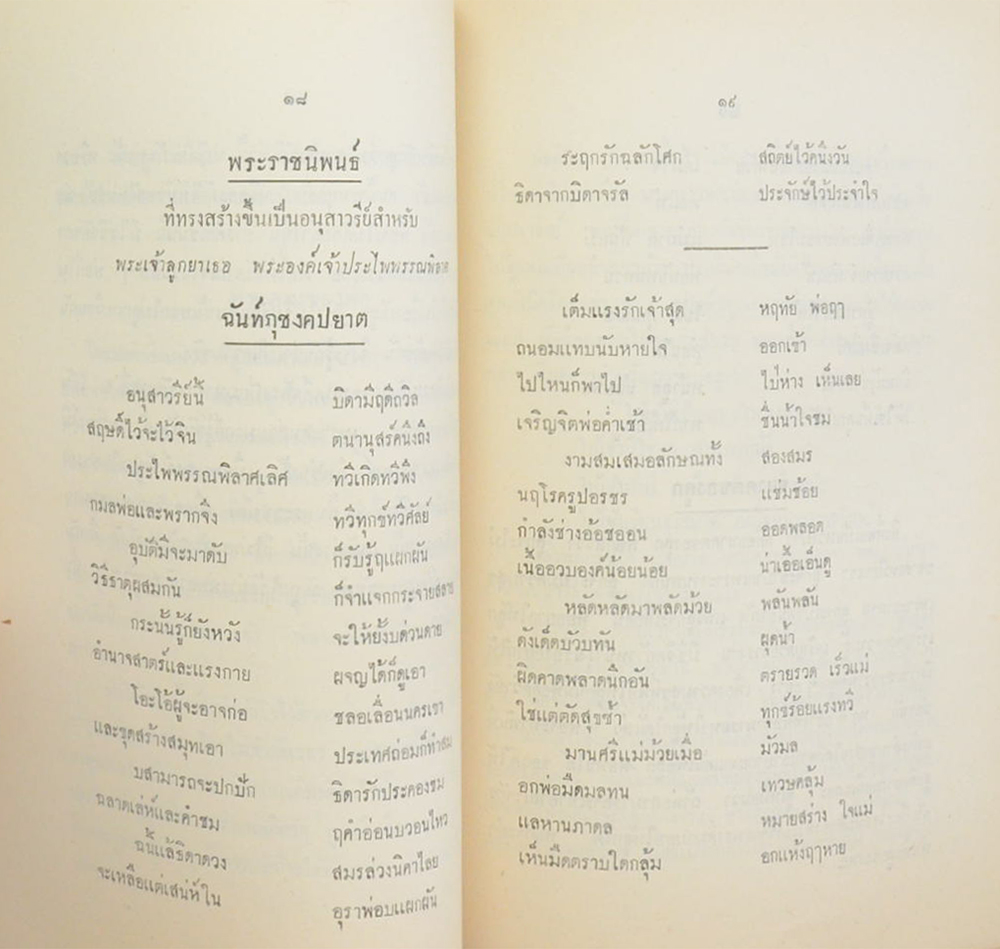 ๑๘
พระราชนิพนธ์
ที่ทรงสร้างขึ้นเป็นอนุสาวรีย์สำหรับ
พระเจ้าลูกยาเธอ พระองค์เจ้าประไพพรรณพิลาศ
ฉันท์ภุชงคปยาต
อนุสาวรีย์นี้ บิดามีฤดีถวิล
สฤษดิ์ไว้จะไว้จิน ตนานุสรคนึงถึง
ประไพพรรณพิลาศเลิศ ทวีเกิดทวีพึง
กมลพ่อและพรากจึง ทวีทุกข์ทวีศัลย์
อุบัติมีจะมาดับ ก็รับรู้ฤแผกผัน
วิธีธาตุผสมกัน ก็จำแจกกระจายสลาย
กระนั้นรู้ก็ยังหวัง จะให้ยั้งบด่วนดาย
อำนาจสาตร์และแรงกาย ผจญได้ก็ดูเอา
โอะโอ้ผู้จะอาจก่อ ชลอเลื่อนนครเขา
และขุดสร้างสมุทเอา ประเทศถ่อมก็ทำสม
บสามารถจะปกปัก ธิดารักประคองชม
ฉลาดเล่ห์และคำชม ฤคำอ่อนบวอนไหว
ฉนี้แล้ธิดาดวง สมรล่วงนิคาไลย
จะเหลือแต่เสน่ห์ใน อุราพ่อบแผกผัน
๑๙
ระฤกรักฉลักโศก สถิตย์ไว้คนึงวัน
ธิดาจากบิดาจรัล ประจักษ์ไว้ประจำใจ
เต็มแรงรักเจ้าสุด หฤทัย พ่อฤๅ
ถนอมแทบนับหายใจ ออกเข้า
ไปไหนก็พาไป ไป่ห่าง เห็นเลย
เจริญจิตพ่อค่ำเช้า ชื่นน้ำใจชม
งามสมเสมอลักษณทั้ง สองสมร
นฤโรครูปอรชร แช่มช้อย
กำลังช่างอ้อชออน ออดพลอด
เนื้ออวบองค์น้อยน้อย น่าเอื้อเอ็นดู
หลัดหลัดมาพลัดม้วย พลันพลัน
ดังเด็ดบัวบทัน ผุดน้ำ
ผิดคาดพลาดนึกอัน ตรายรวด เร็วแม่
ใช่แต่ตัดสุขซ้ำ ทุกข์ร้อยแรงทวี
มานศรีแม่ม้วยเมื่อ มัวมล
อกพ่อมืดมลทน เทวษคลุ้ม
แลหานภาดล หมายสร่าง ใจแม่
เห็นมืดตราบใดกลุ้ม อกแห้งฤๅหาย